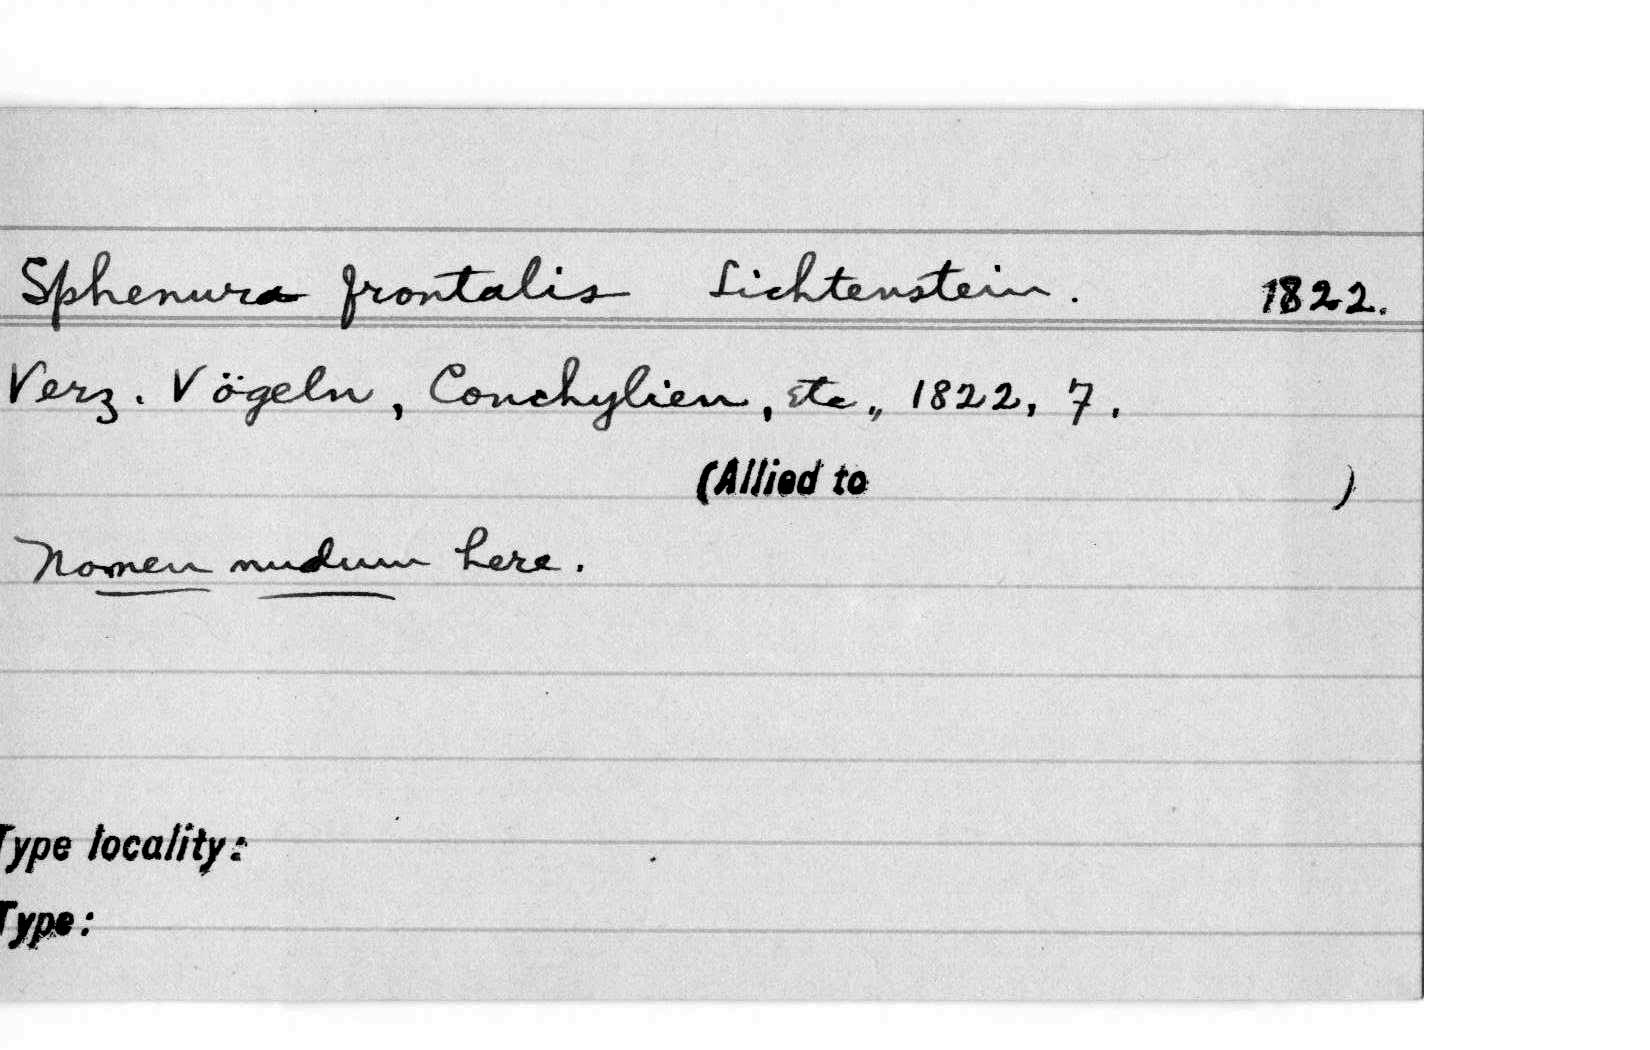 Sphenura frontalis Lichtenstein. 1822.
Verz. Vögeln, Conchylien, etc., 1822, 7.
(Allied to )
Nomen nudum here.
Type locality:
Type: